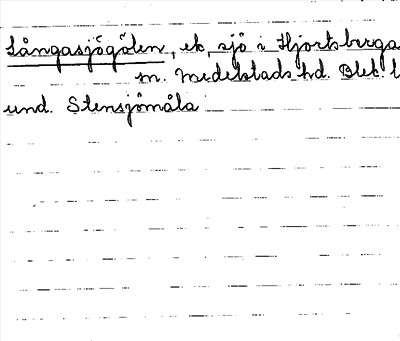 Långasjögölen, ek, sjö i Hjortsberga
m. Medelstads hd. Blek. l
und. Stensjömåla